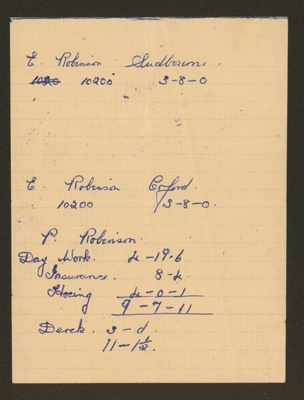 E. Robinson Sudbourne
10200 3-8-0
E. Robinson Orford.
10200 3-8-0.
P. Robinson.
Day Work. 4-19-6
Insurance. 8-4.
Hoeing 4-0-1
9-7-11
Derek. 3-d.
11-1½.